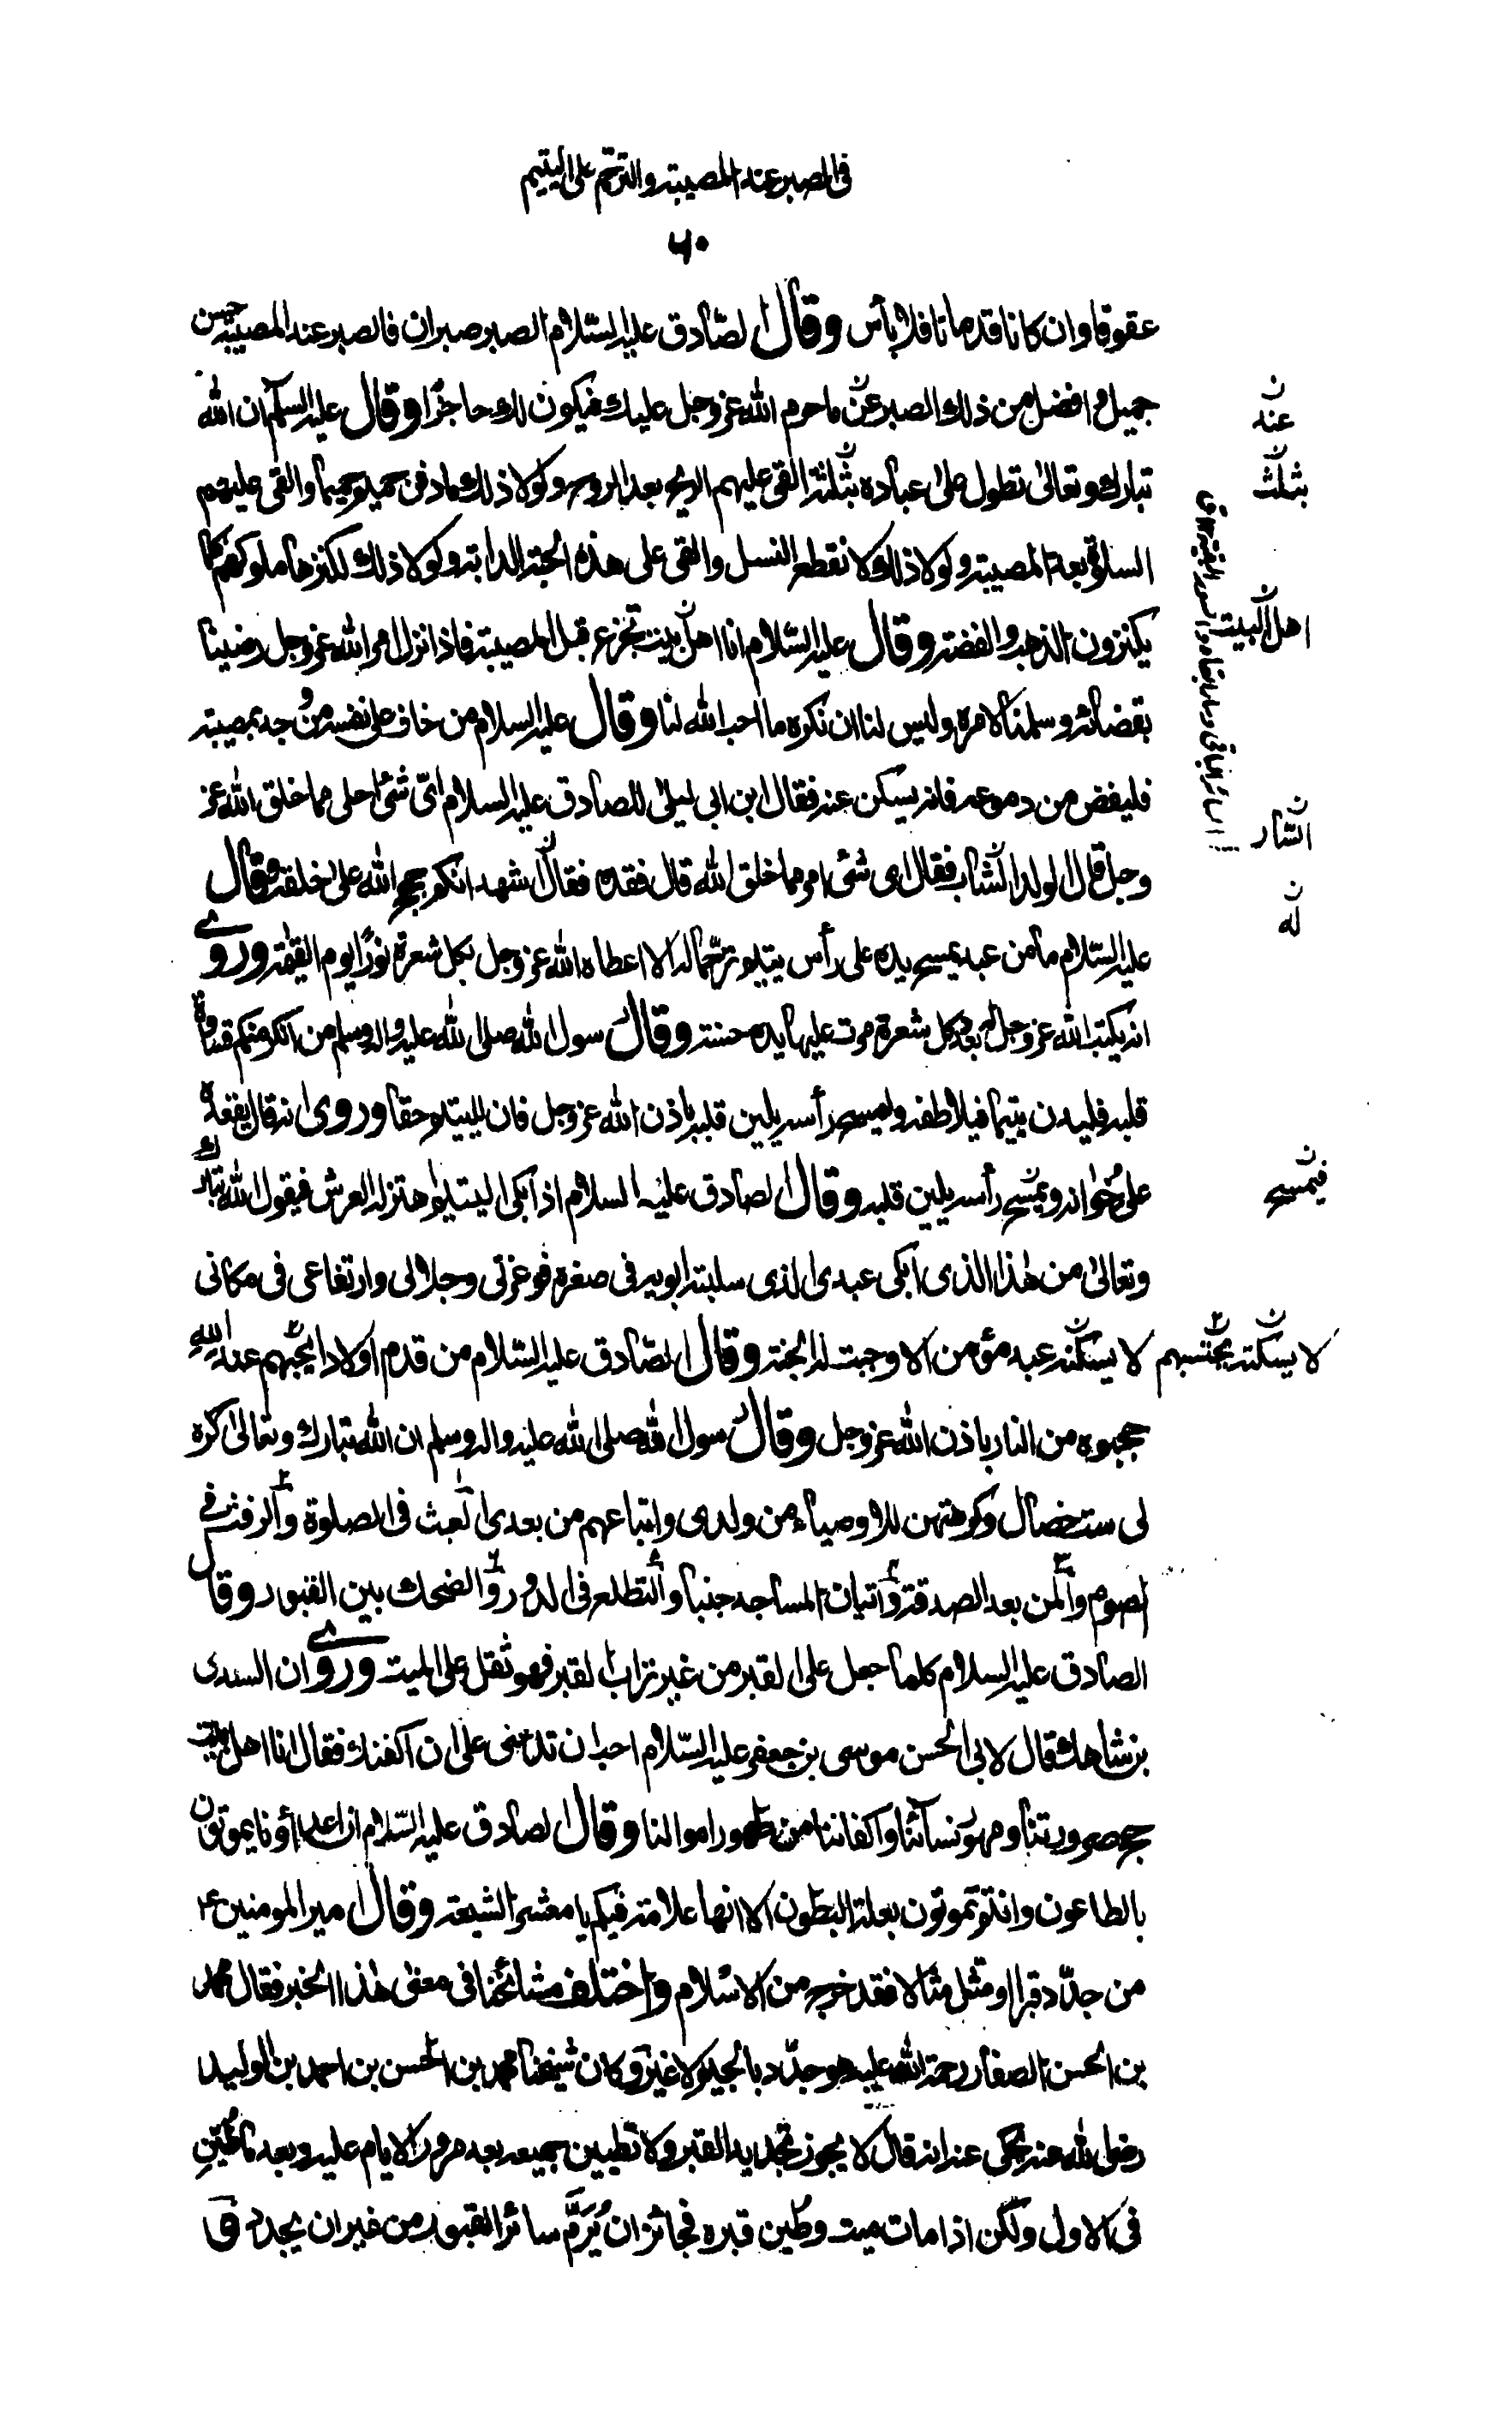 فی الصبر عند المصیبة والترحم علی الیتیم
۶۰
عقوقا وان كانا قد ماتا فلا بأس وقال الصّادق علیه السّلام الصبر صبران فالصبر عند المصیبة حسن
جمیل وافضل من ذلك الصبر عن ما حرم الله عز وجل علیك فیكون لك حاجزًا وقال علیه السلم ان الله
تبارك وتعالی تطول علی عباده بثلثة القی علیهم الریح بعد الروح ولولا ذلك ما دفن حمیم حمیما والقی علیهم
السلوة بعد المصیبة ولولا ذلك لانقطع النسل والقی علی هذه الحبة الدابة ولولا ذلك لكنزها ملوكهم كما
یكنزون الذهب والفضة وقال علیه السّلام انا اهل بیت نجزع قبل المصیبة فاذا نزل امر الله عز وجل رضینا
بقضائه وسلمنا لامره ولیس لنا ان نكره ما احب الله لنا وقال علیه السلام من خاف علی نفسه من وجد بمصیبة
فلیفض من دموعه فانه یسكن عنه فقال ابن ابی لیلی للصادق علیه السلام ایّ شئ احلی مما خلق الله عز
وجل قال الولد الشاب فقال ای شئ امر مما خلق الله قال فقده فقال اشهد انكم حجج الله علی خلقه وقال
علیه السّلام ما من عبد یمسح یده علی رأس یتیم ترحّما له الا اعطاه الله عز وجل بكل شعرة نورًا یوم القیمة وروی
انه یكتب الله عز وجل له بعدد كل شعرة مرت علیها یده حسنة وقال رسول الله صلی الله علیه واله وسلم من انكر منكم قساوة
قلبه فلیدن یتیما فیلاطفه ولیمسح رأسه یلین قلبه باذن الله عز وجل فان للیتیم حقا وروی انه قال یقعده
علی خوانه ویمسح رأسه یلین قلبه وقال الصادق علیه السلام اذا بكی الیتیم اهتز له العرش فیقول الله تبارك
وتعالی من هذا الذی ابكی عبدی الذی سلبته ابویه فی صغره فوعزتی وجلالی وارتفاعی فی مكانی
لا یسكنه عبد مؤمن الا وجبت له الجنة وقال الصّادق علیه السّلام من قدم اولادا یحتسبهم عند الله
حجبوه من النار باذن الله عز وجل وقال رسول الله صلی الله علیه واله وسلم ان الله تبارك وتعالی كره
لی ست خصال وكرهتهن للاوصیاء من ولدی واتباعهم من بعدی العبث فی الصلوة والرفث فی
الصوم والمن بعد الصدقة واتیان المساجد جنبا والتطلع فی الدور والضحك بین القبور وقال
الصادق علیه السلام كلما جعل علی القبر من غیر تراب القبر فهو ثقل علی المیت وروی ان السندی
بن شاهك قال لابی الحسن موسی بن جعفر علیه السّلام احب ان تدعنی علی ان اكفنك فقال انا اهل بیت
حج صرورتنا ومهور نسائنا واكفاننا من طهور اموالنا وقال الصادق علیه السّلام ان اعداؤنا یموتون
بالطاعون وانتم تموتون بعلة البطون الا انها علامة فیكم یا معشر الشیعة وقال امیر المومنین ع
من جدّد قبرا او مثل مثالا فقد خرج من الاسلام واختلف مشائخنا فی معنی هذا الخبر فقال محمد
بن الحسن الصفار رحمة الله علیه هو جدّد بالجیم لا غیر وكان شیخنا محمد بن الحسن بن احمد بن الولید
رضی الله عنه یحكی عنه انه قال لا یجوز تجدید القبر ولا تطیین جمیعه بعد مرور الایام علیه وبعد ما طُیّن
فی الاول ولكن اذا مات میت وطین قبره فجائز ان یُرَمَّ سائر القبور من غیر ان یجدد ق
عنه
بثلث
اهل البیت
السّار
له
فیمسح
لا یسكته یحتسبهم